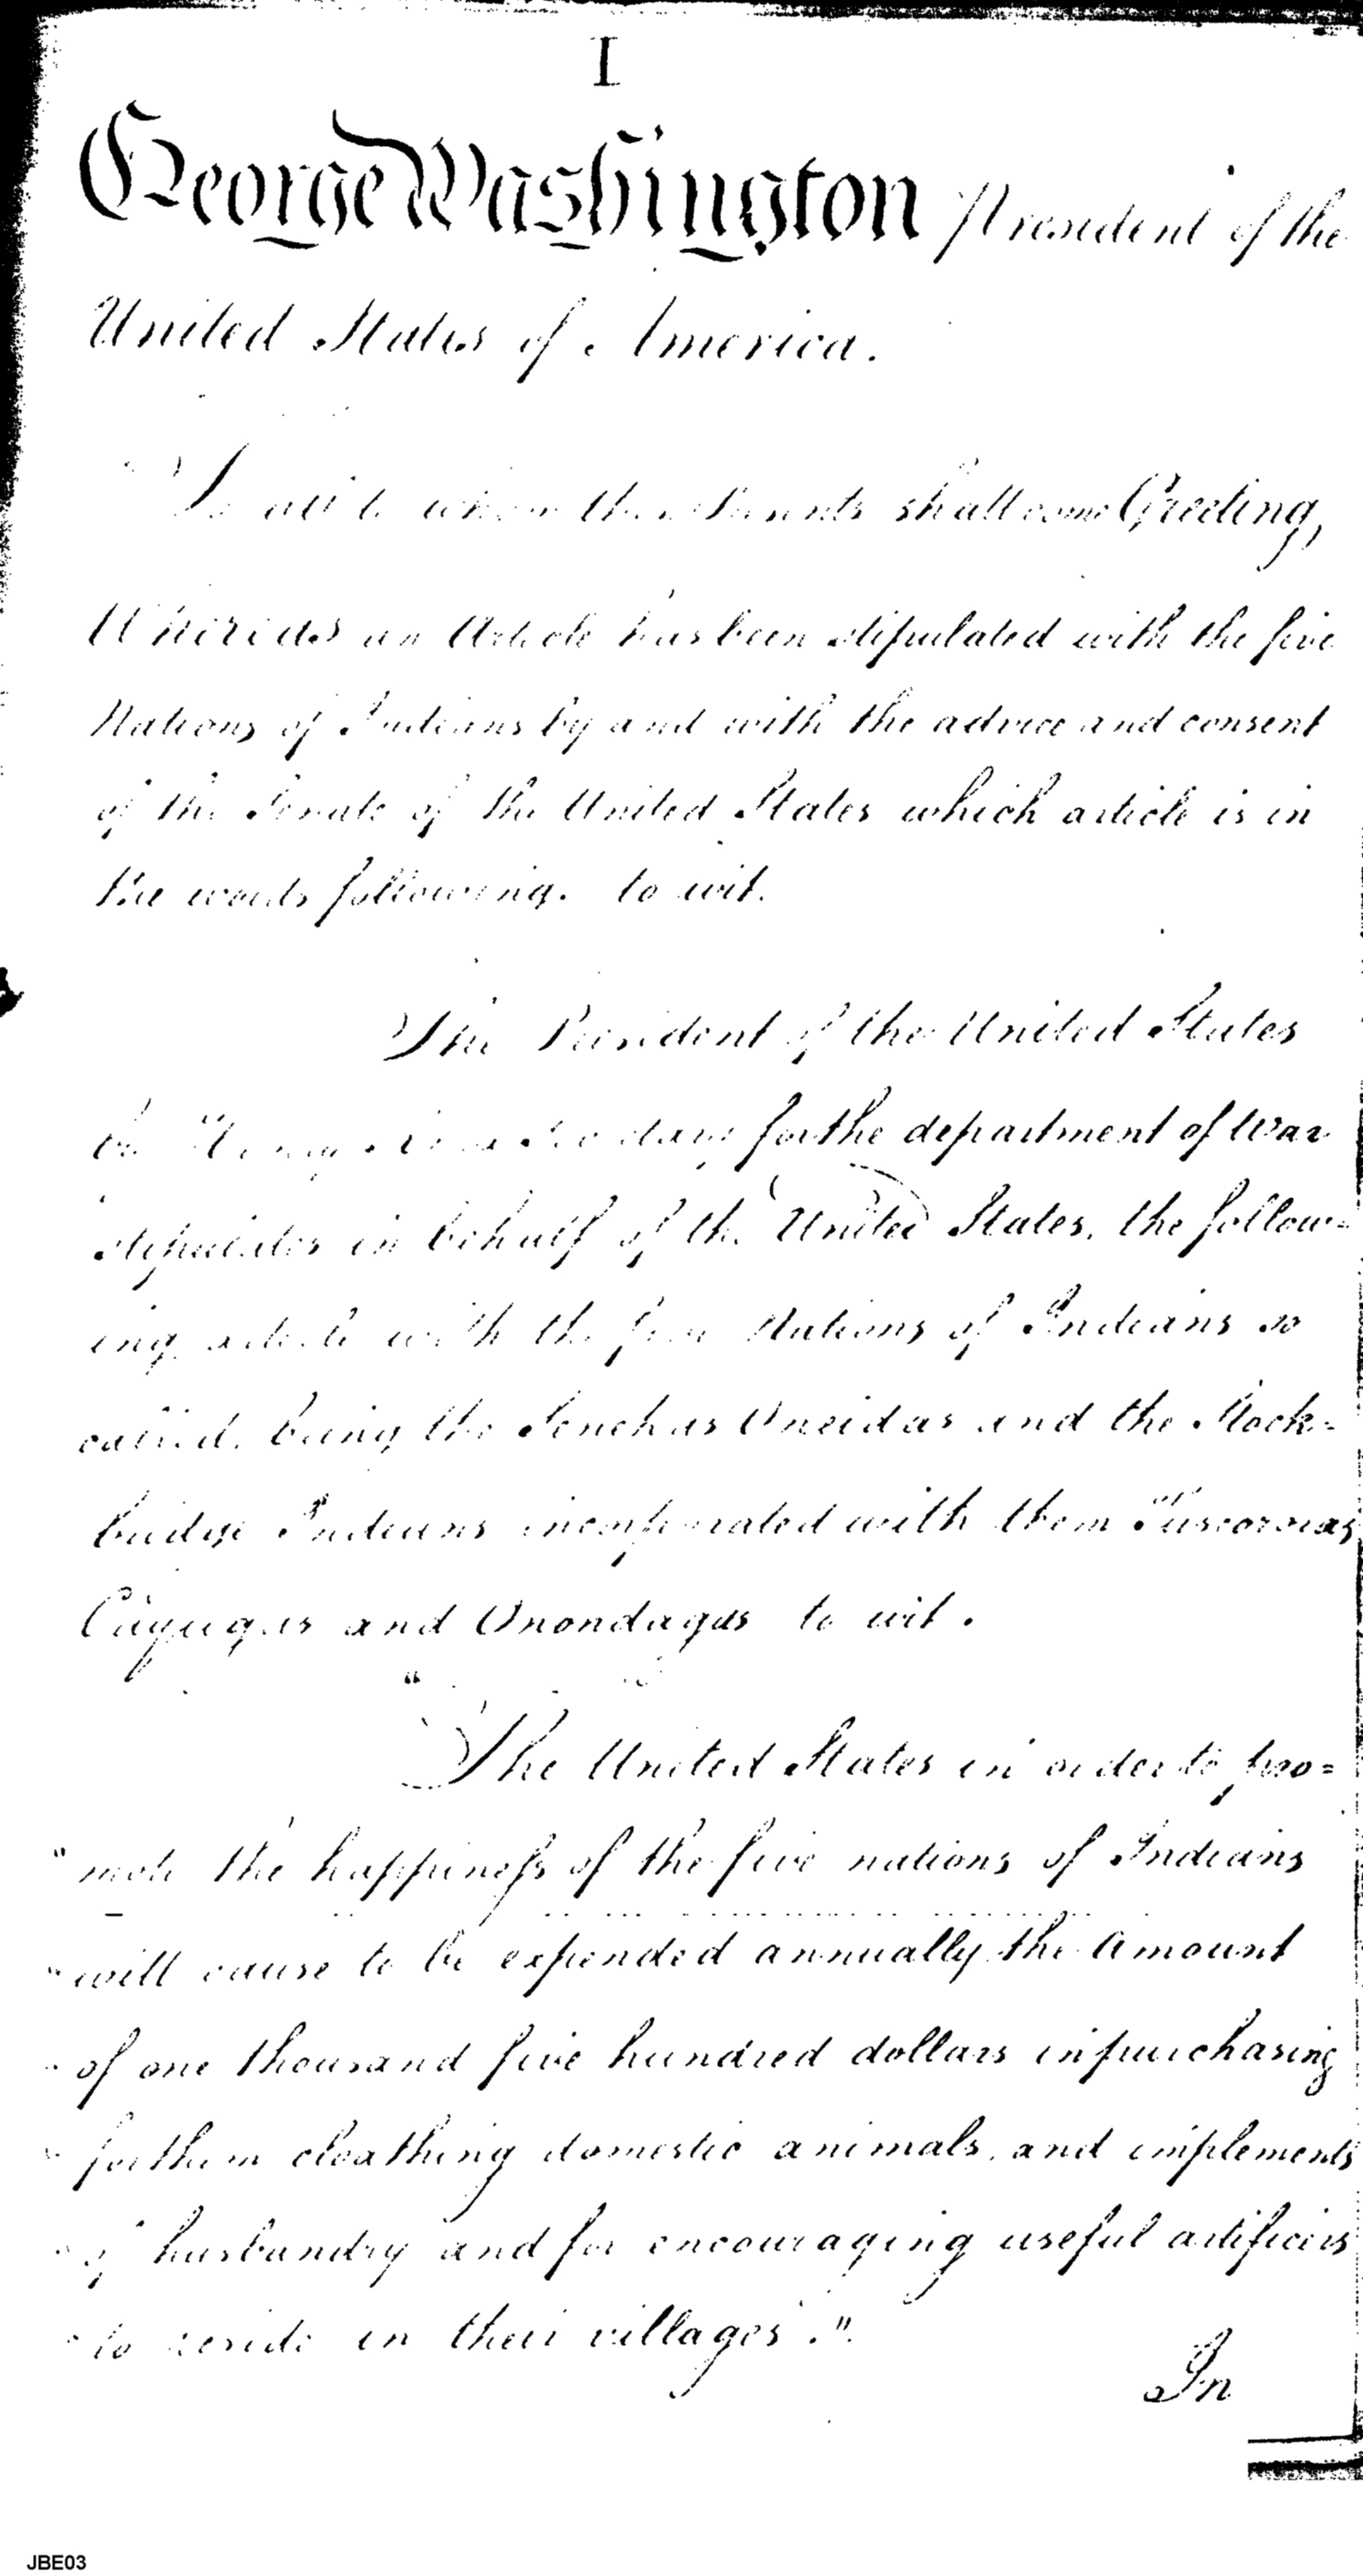 I
George Washington President of the
United States of America.
To all to whom these Presents shall come Greeting,
Whereas an Article has been stipulated with the five
Nations of Indians by and with the advice and consent
of the Senate of the United States which article is in
the words following. to wit.
The President of the United States
by Henry Knox Secretary for the department of War
stipulates in behalf of the United States, the follow=
ing article with the five Nations of Indians so
called, being the Senekas Oneidas and the Stock=
bridge Indians incorporated with them Tuscororas
Cayugas and Onondagas to wit.
"The United States in order to pro=
"mote the happiness of the five nations of Indians
"will cause to be expended annually the Amount
"of one thousand five hundred dollars in purchasing
"for them cloathing domestic animals, and implements
"of husbandry and for encouraging useful artificers
"to reside in their villages."
In
JBE03